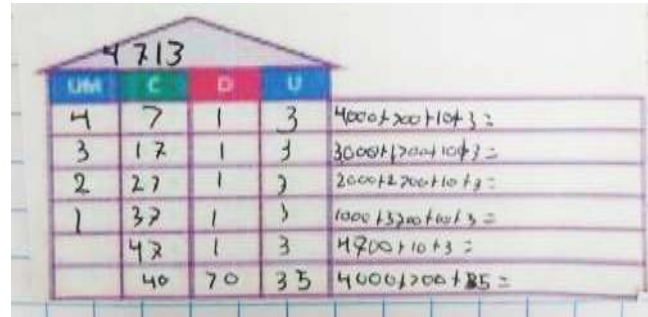 4713
UM C D U
4 7 1 3 4000+700+10+3=
3 17 1 3 3000+1700+10+3=
2 27 1 3 2000+2700+10+3=
1 37 1 3 1000+3700+10+3=
47 1 3 4700+10+3=
40 70 35 4000+700+35=